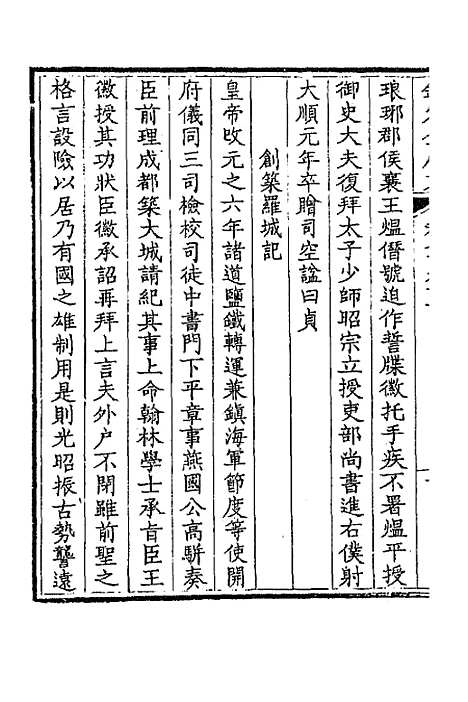 琅琊郡侯襄王煴僭號迫作誓牒徽托手疾不署煴平授
御史大夫復拜太子少師昭宗立授吏部尚書進右僕射
大順元年卒贈司空諡曰貞
創築羅城記
皇帝改元之六年諸道鹽鐵轉運兼鎮海軍節度等使開
府儀同三司檢校司徒中書門下平章事燕國公高駢奏
臣前理成都築大城請紀其事上命翰林學士承旨臣王
徽授其功狀臣徽承詔再拜上言夫外户不閉雖前聖之
格言設險以居乃有國之雄制用是則光昭振古勢讋遠